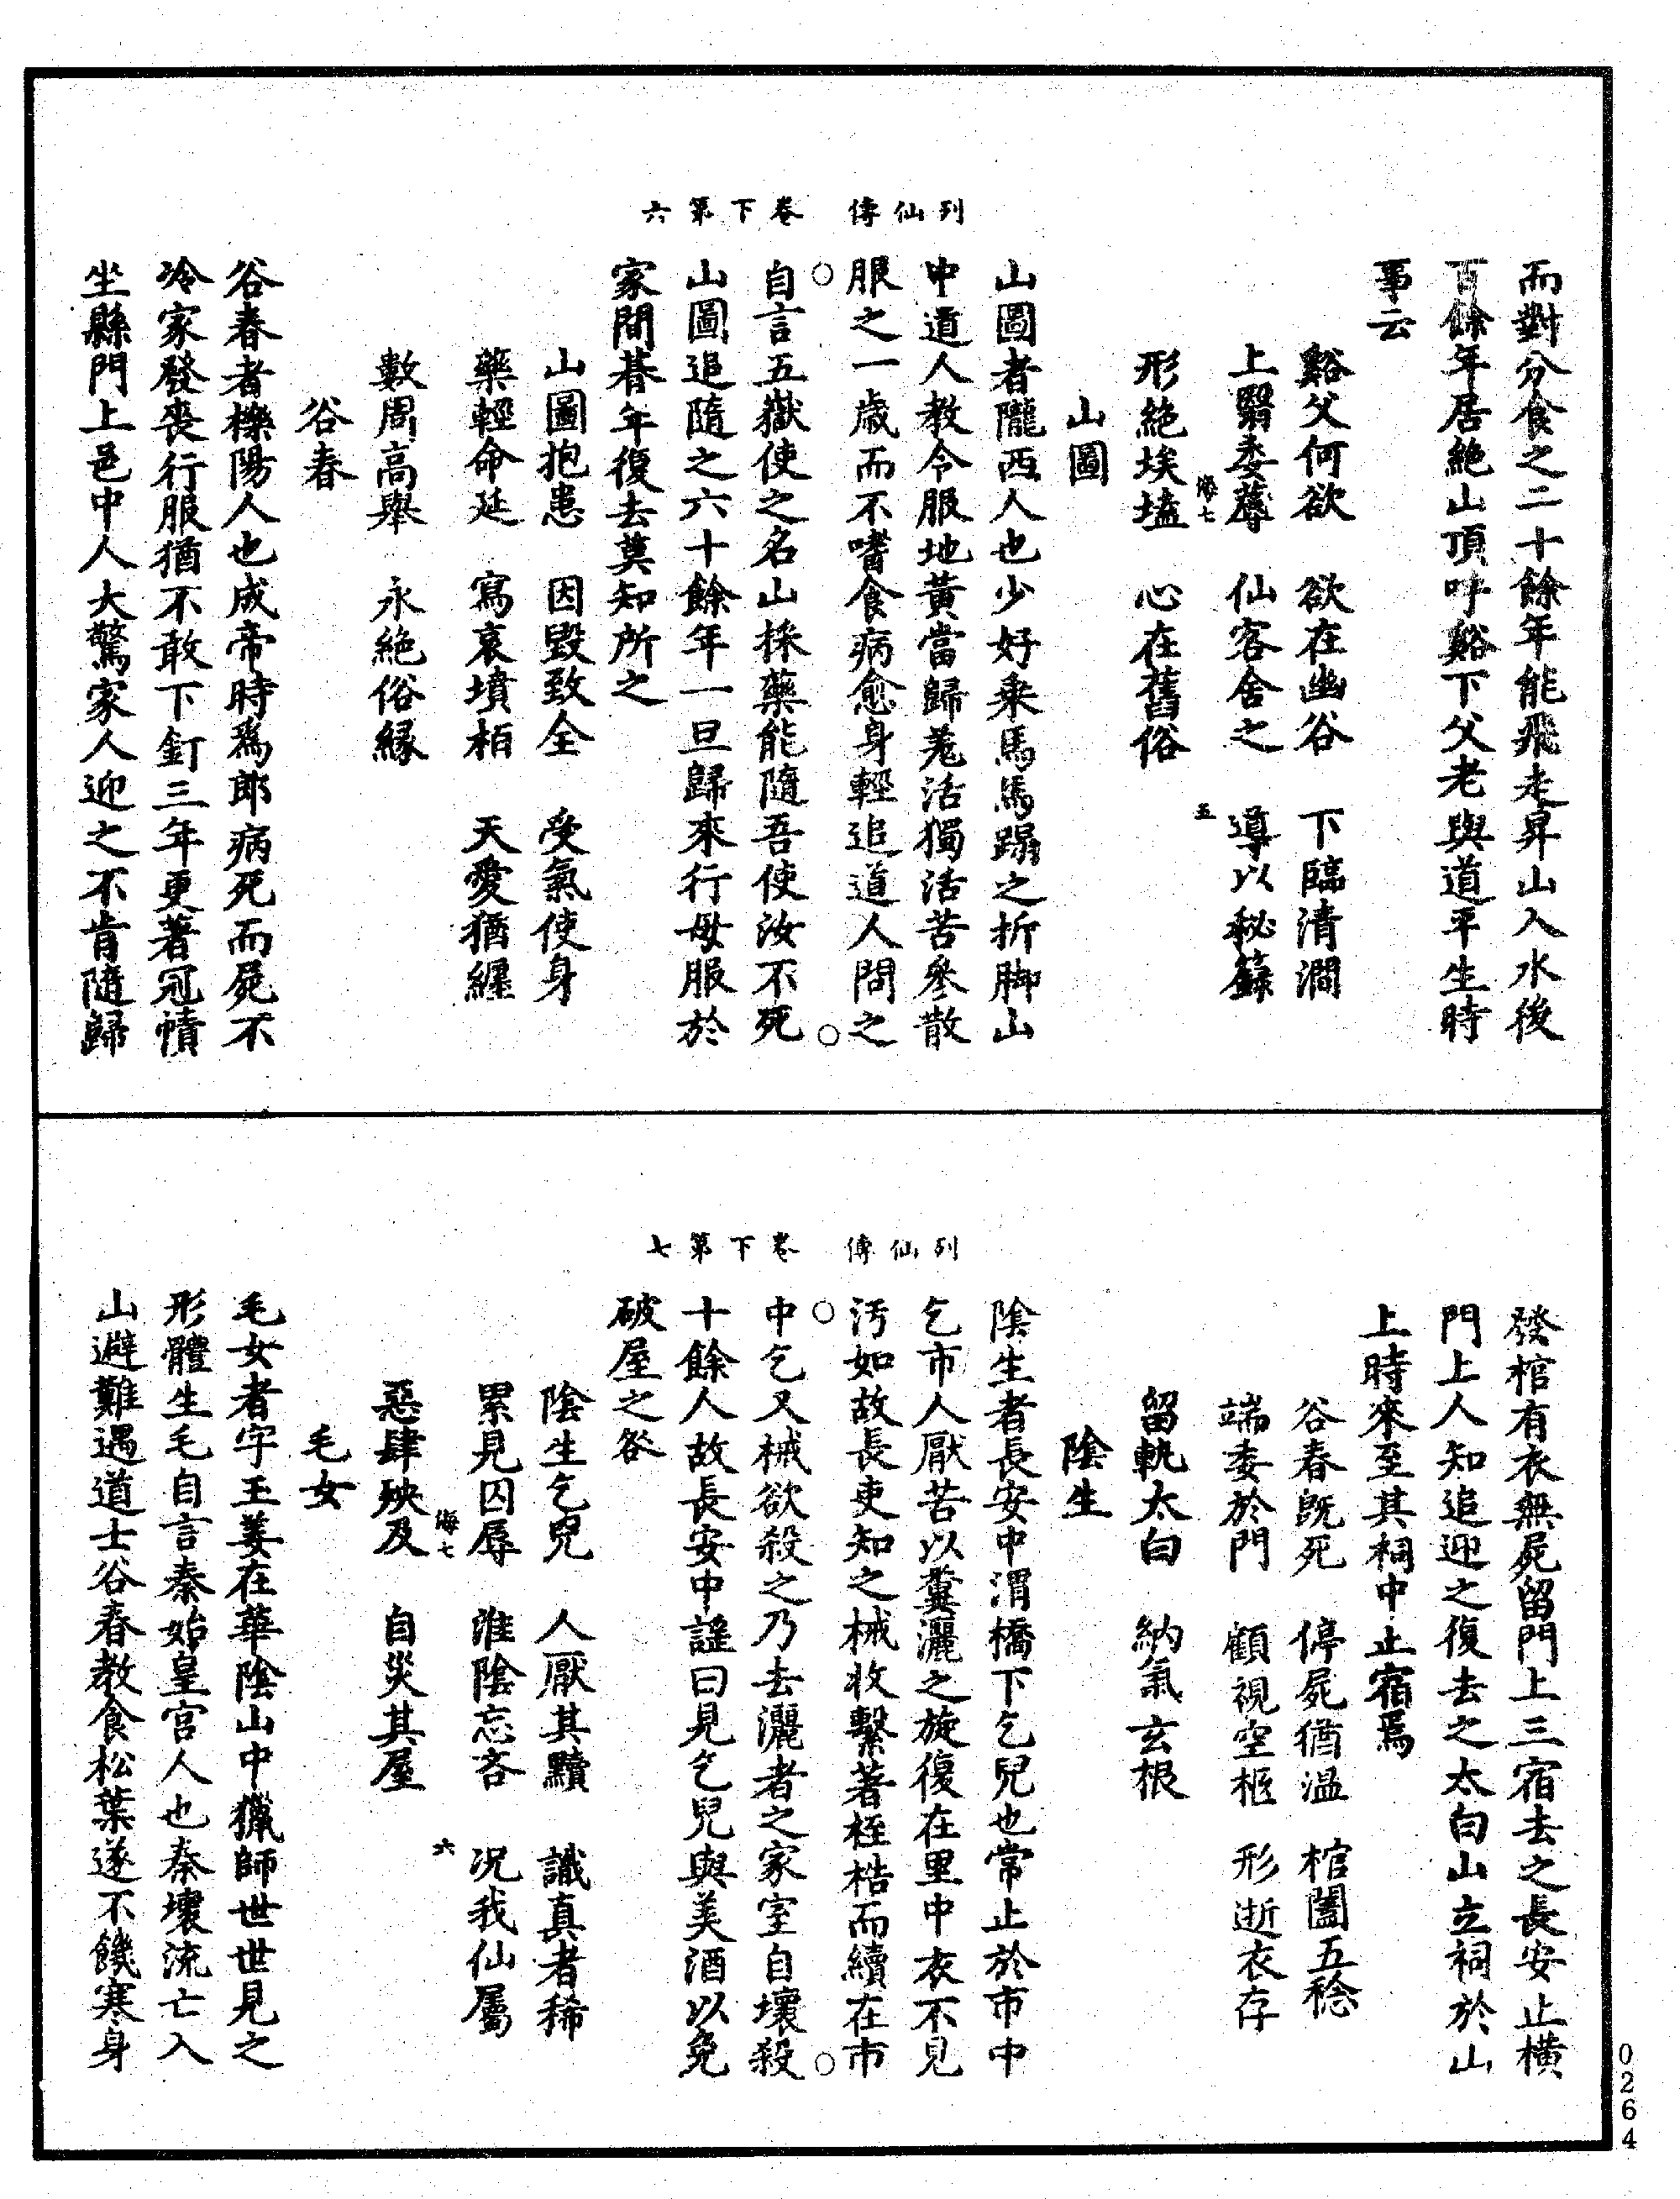 列仙傳　卷下第六
而對分食之二十餘年能飛走昇山入水後
百餘年居絕山頂呼谿下父老與道平生時
事云
谿父何欲　欲在幽谷　下臨清澗
上翳委蓐　仙客舍之　導以秘籙
形絕埃壒　心在舊俗
海七　五
山圖
山圖者隴西人也少好乘馬馬蹋之折脚山
中道人教令服地黃當歸羌活獨活苦參散
服之一歲而不嗜食病愈身輕追道人問之
自言五嶽使之名山採藥能隨吾使汝不死
山圖追隨之六十餘年一旦歸來行母服於
家間朞年復去莫知所之
山圖抱患　因毀致全　受氣使身
藥輕命延　寫哀墳柏　天愛猶纏
數周高舉　永絕俗緣
谷春
谷春者櫟陽人也成帝時爲郎病死而屍不
冷家發喪行服猶不敢下釘三年更著冠幘
坐縣門上邑中人大驚家人迎之不肯隨歸
列仙傳　卷下第七
發棺有衣無屍留門上三宿去之長安止橫
門上人知追迎之復去之太白山立祠於山
上時來至其祠中止宿焉
谷春既死　停屍猶溫　棺闔五稔
端委於門　顧視空柩　形逝衣存
留軌太白　納氣玄根
陰生
陰生者長安中渭橋下乞兒也常止於市中
乞市人厭苦以糞灑之旋復在里中衣不見
汚如故長吏知之械收繫著桎梏而續在市
中乞又械欲殺之乃去灑者之家室自壞殺
十餘人故長安中謡曰見乞兒與美酒以免
破屋之咎
陰生乞兒　人厭其黷　識真者稀
累見囚辱　淮陰忘吝　况我仙屬
惡肆殃及　自災其屋
海七　六
毛女
毛女者字玉姜在華陰山中獵師世世見之
形體生毛自言秦始皇宮人也秦壞流亡入
山避難遇道士谷春教食松葉遂不饑寒身
0264